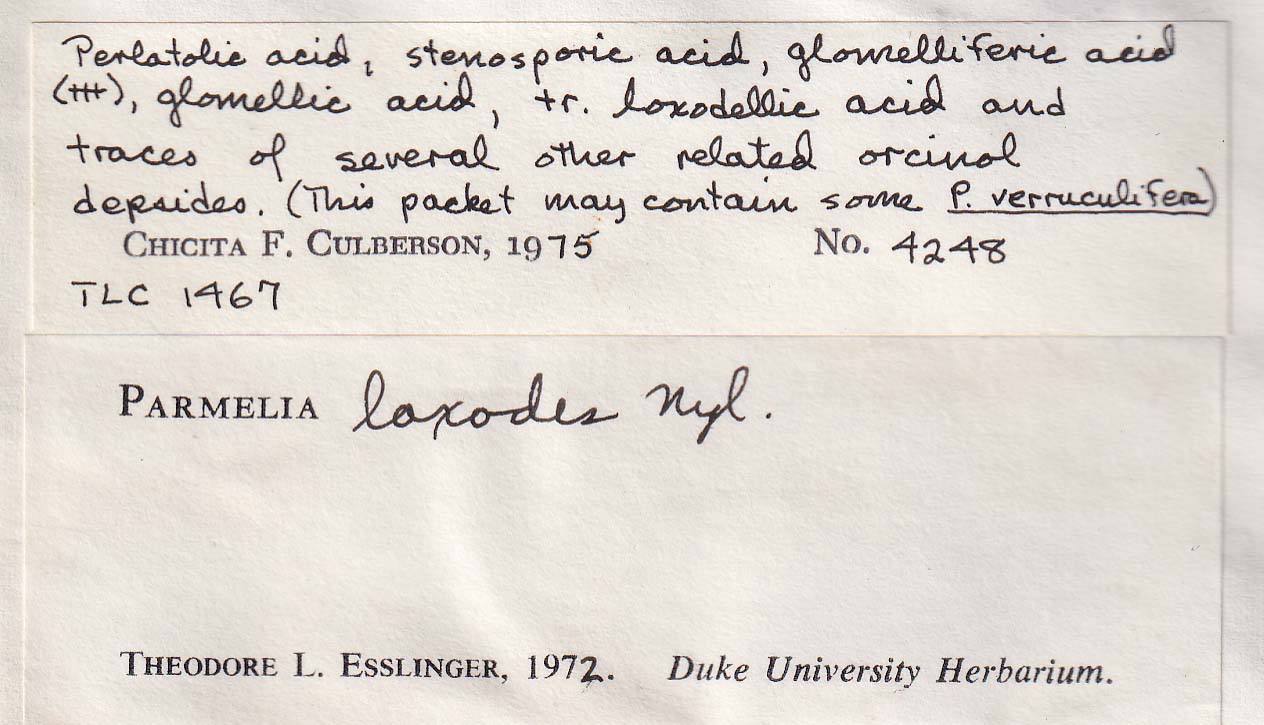 Perlatolic acid, stenosporic acid, glomelliferic acid
(+++), glomellic acid, tr. loxodellic acid and
traces of several other related orcinol
depsides. (This packet may contain some P. verruculifera)
CHICITA F. CULBERSON, 1975 No. 4248
TLC 1467
PARMELIA loxodes Nyl.
THEODORE L. ESSLINGER, 1972. Duke University Herbarium.